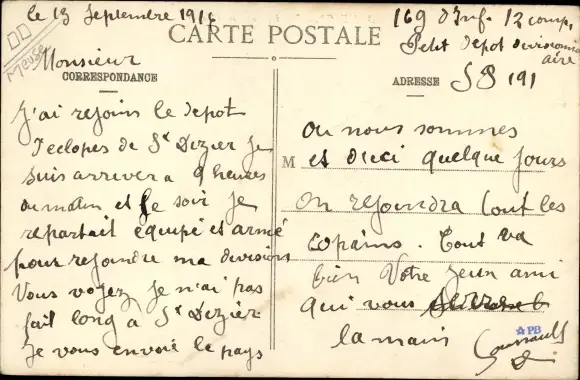 le 13 Septembre 1916
169 d'Inf. 12 comp.
Petit depot divisionnaire
SP 191
Meuse
CARTE POSTALE
CORRESPONDANCE
ADRESSE
M
Monsieur
J'ai rejoins le depot
d'eclopes de St Dizier je
suis arriver a 9 heures
du matin et le soir je
repartait équipé et armé
pour rejoindre ma division
Vous voyez je n'ai pas
fait long à St Dizier
Je vous envoie le pays
ou nous sommes
et dici quelque jours
on rejoindra tout les
copains. Tout va
bien Votre jeun ami
qui vous
la main
PB